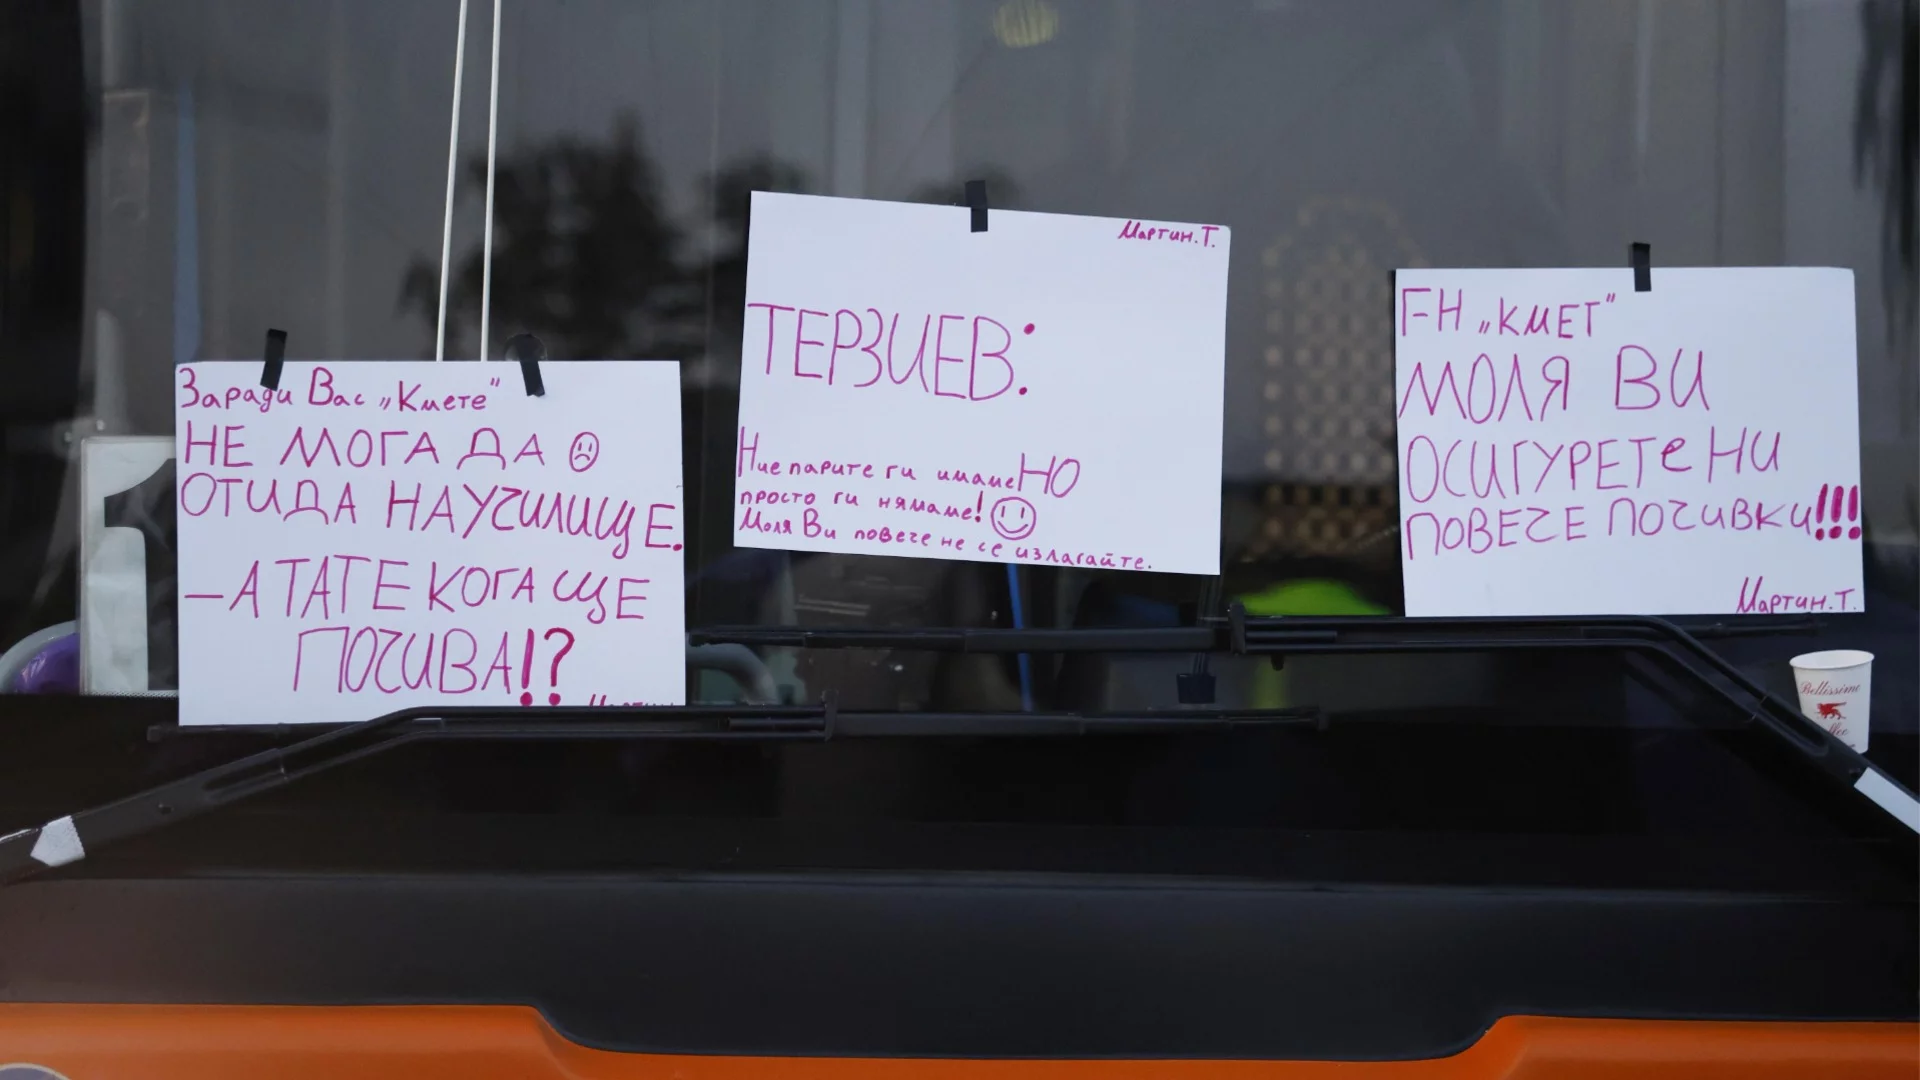 Заради Вас „Кмете"
НЕ МОГА ДА
ОТИДА НА УЧИЛИЩЕ.
– А ТАТЕ КОГА ЩЕ
ПОЧИВА!?
Мартин
Мартин.Т.
ТЕРЗИЕВ:
Ние парите ги имаме НО
просто ги нямаме!
Моля Ви повече не се излагайте.
Г-Н „КМЕТ"
МОЛЯ ВИ
ОСИГУРЕТе НИ
ПОВЕЧЕ ПОЧИВКИ!!!
Мартин.Т.
Bellissimo